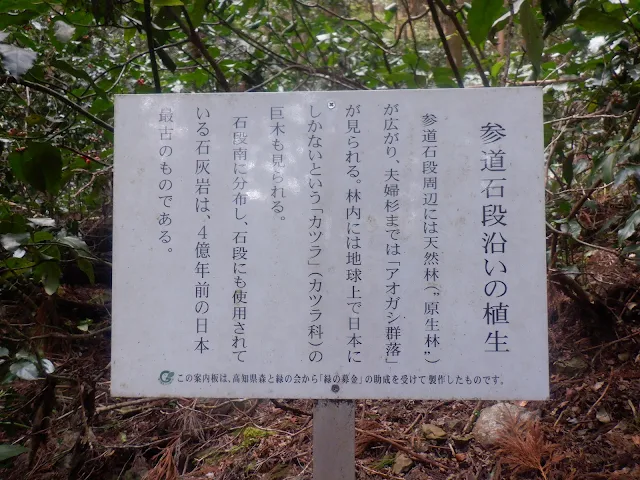 参道石段沿いの植生
参道石段周辺には天然林(〝原生林〟)
が広がり、夫婦杉までは「アオガシ群落」
が見られる。林内には地球上で日本に
しかないという「カツラ」(カツラ科)の
巨木も見られる。
石段南に分布し、石段にも使用されて
いる石灰岩は、4億年前の日本
最古のものである。
この案内板は、高知県森と緑の会から「緑の募金」の助成を受けて製作したものです。